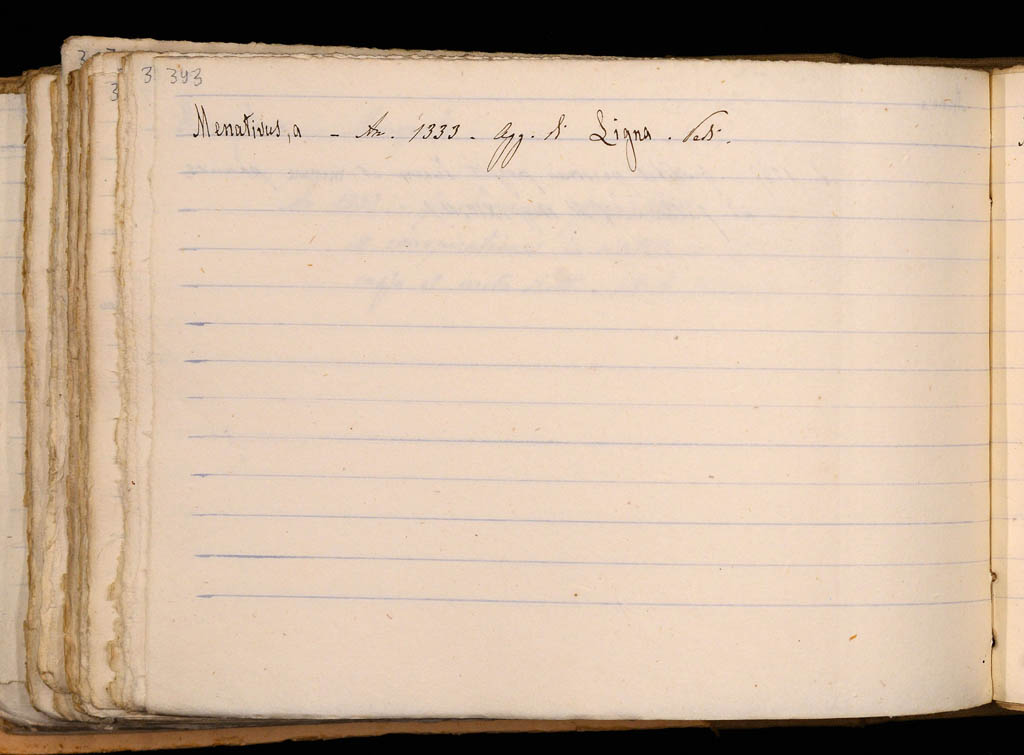 3 393
Menativus, a - An. 1333. Agg. di Ligna. Vedi.